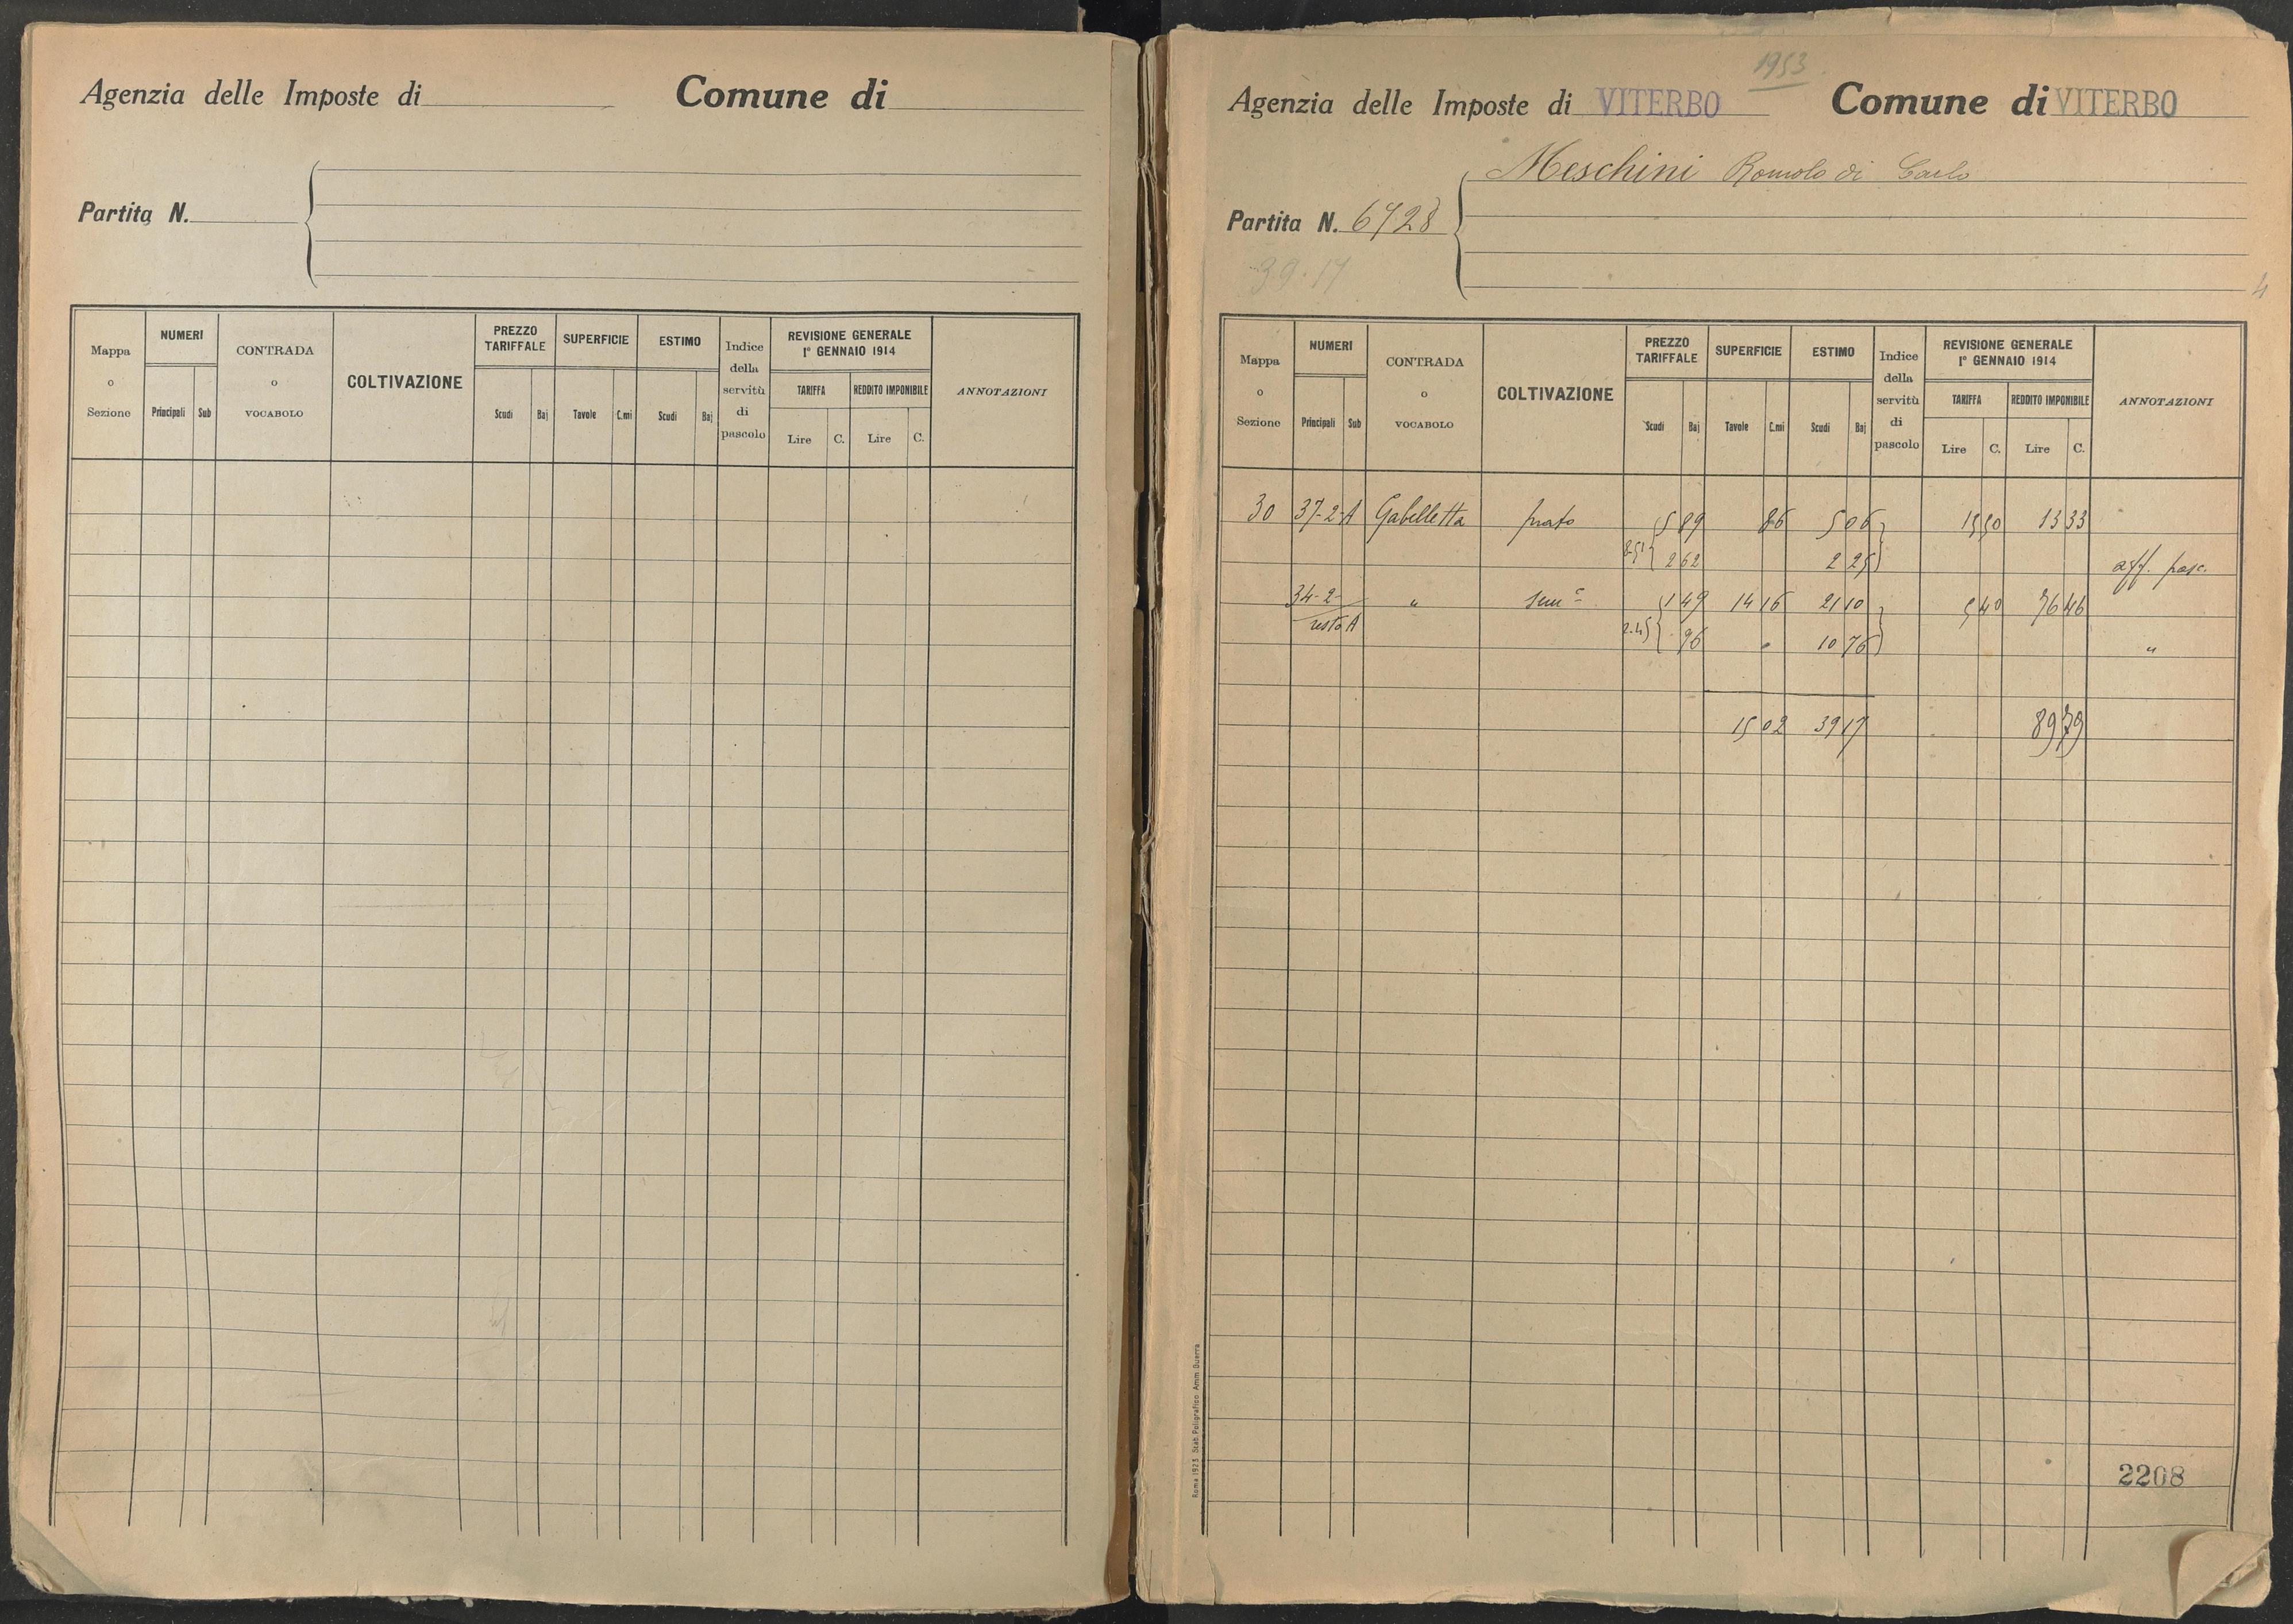 Agenzia delle Imposte di Comune di
Partita N.
Mappa o Sezione
NUMERI
Principali Sub
CONTRADA o VOCABOLO
COLTIVAZIONE
PREZZO TARIFFALE
Scudi Baj
SUPERFICIE
Tavole C.mi
ESTIMO
Scudi Baj
Indice della servitù di pascolo
REVISIONE GENERALE
1° GENNAIO 1914
TARIFFA REDDITO IMPONIBILE
Lire C. Lire C.
ANNOTAZIONI
1953
Agenzia delle Imposte di VITERBO Comune di VITERBO
Meschini Romolo di Carlo
Partita N. 6728
39.17
4
Mappa o Sezione
NUMERI
Principali Sub
CONTRADA o VOCABOLO
COLTIVAZIONE
PREZZO TARIFFALE
Scudi Baj
SUPERFICIE
Tavole C.mi
ESTIMO
Scudi Baj
Indice della servitù di pascolo
REVISIONE GENERALE
1° GENNAIO 1914
TARIFFA REDDITO IMPONIBILE
Lire C. Lire C.
ANNOTAZIONI
30 37-2-A Gabelletta prato 5 89 86 5 06 15 50 13 33
8.51 2 62 2 25 aff. pasc.
34-2- " sem° 1 49 14 16 21 10 5 40 76 46
resto A 2.45 96 " 10 76 "
15 02 39 17 89 79
2208
Roma 1923 Stab. Poligrafico Amm. Guerra